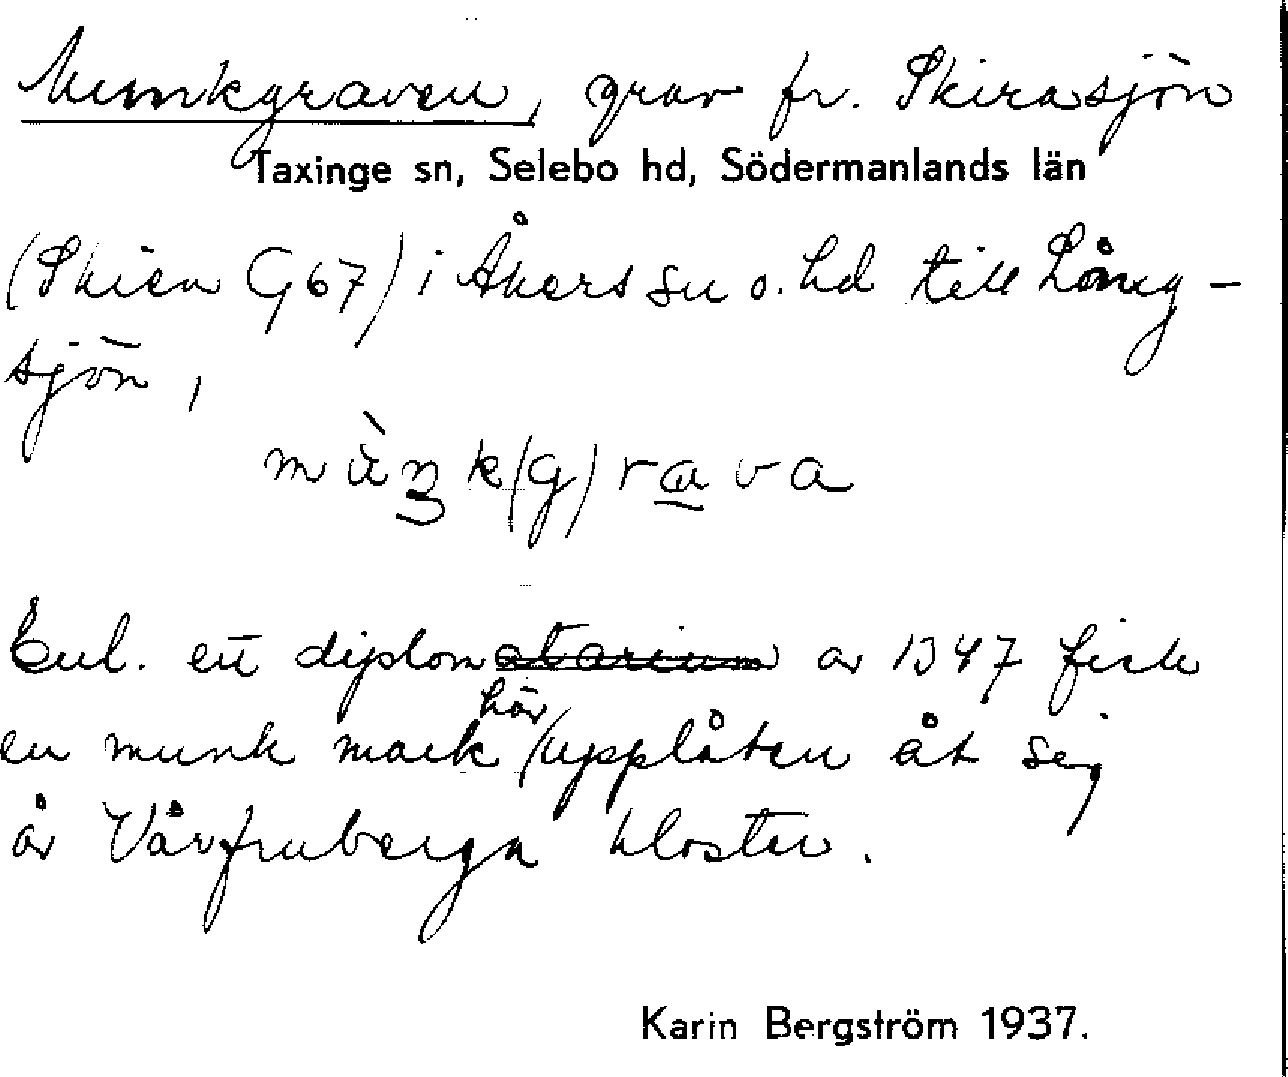 Munkgraven, grav fr. Skirasjön
Taxinge sn, Selebo hd, Södermanlands län
(Skiren G67) i Åkers sn o. hd till Lång-
sjön,
mùn̠k(g)ra̠va
Enl. ett diplomatarium av 1347 fick
en munk mark här upplåten åt sig
av Vårfruberga kloster.
Karin Bergström 1937.